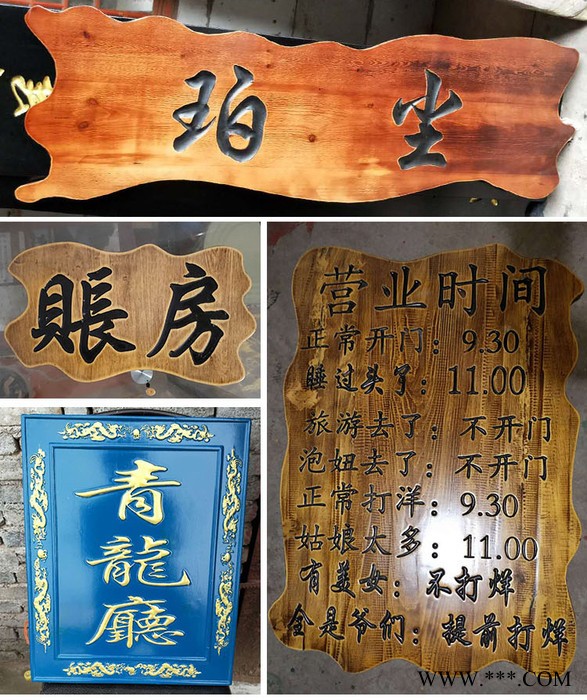 珀尘
賬房
营业时间
正常开门：9.30
睡过头了：11.00
旅游去了：不开门
泡妞去了：不开门
正常打洋：9.30
姑娘太多：11.00
有美女：不打烊
全是爷们：提前打烊
青龍廳
WWW.***.COM